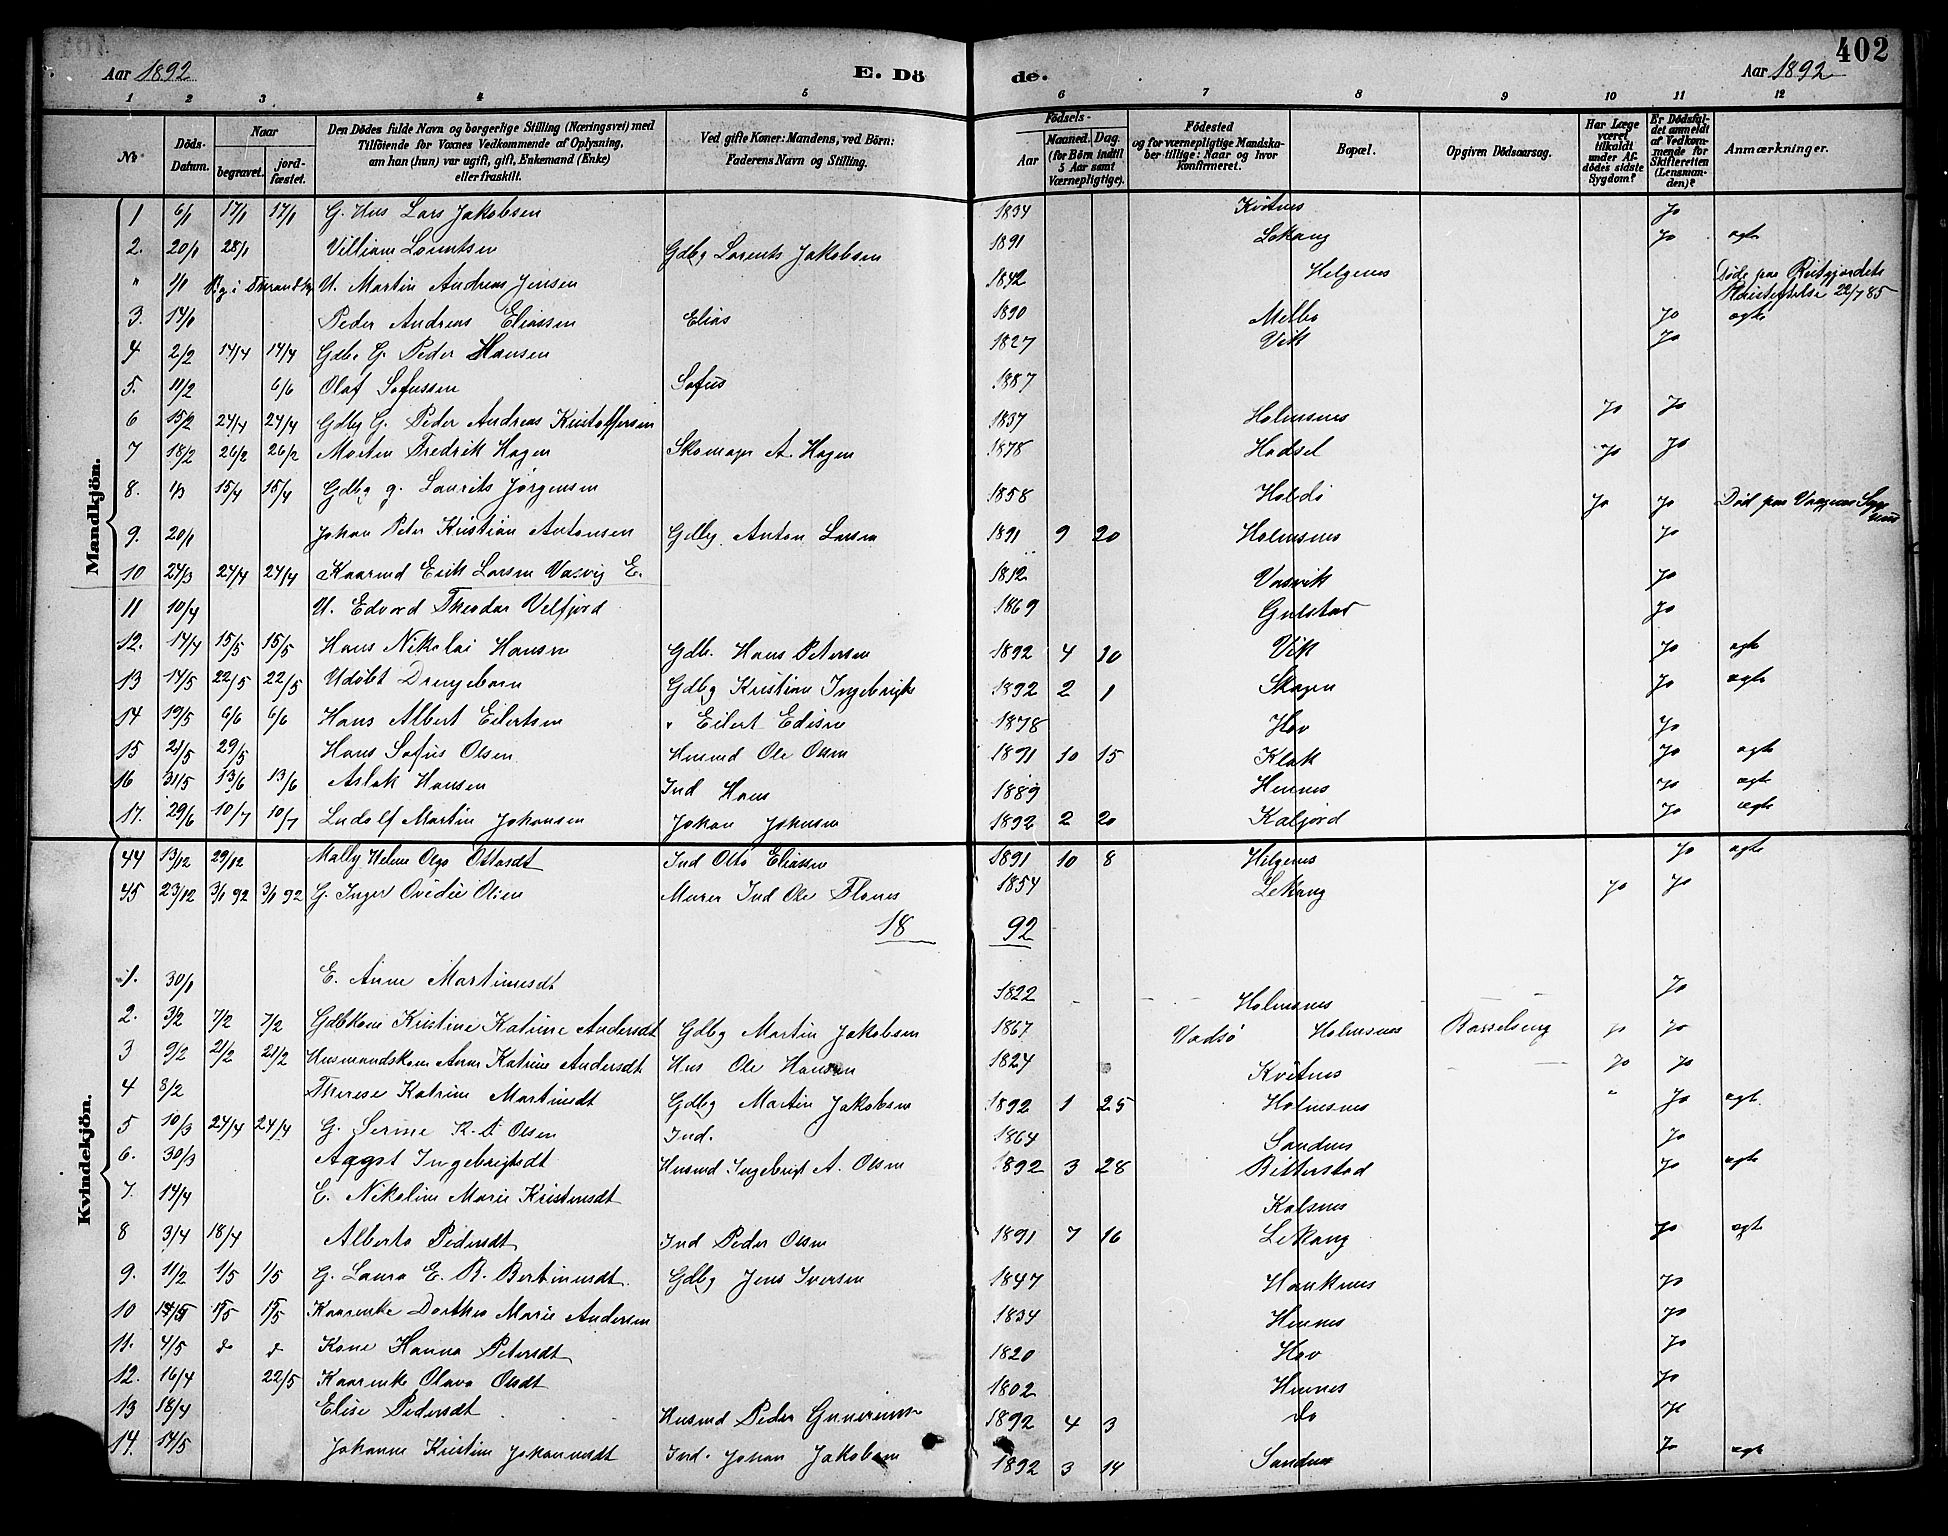 402
Aar 1892 E. Dö de. Aar 1892
1 2 3 4 5 6 7 8 9 10 11 12
No Döds-Datum. Naar begravet. jordfæstet. Den Dödes fulde Navn og borgerlige Stilling (Næringsvei) med Tilföiende for Voxnes Vedkommende af Oplysning, om han (hun) var ugift, gift, Enkemand (Enke) eller fraskilt. Ved gifte Koner: Mandens, ved Börn: Faderens Navn og Stilling. Födsels- Aar Maaned. Dag. (for Börn indtil 5 Aar samt Værnepligtige). Födested og for værnepligtige Mandskaber tillige: Naar og hvor konfirmeret. Bopæl. Opgiven Dödsaarsag. Har Læge været tilkaldt under Afdödes sidste Sygdom? Er Dödsfaldet anmeldt af Vedkommende for Skifteretten (Lensmanden)? Anmærkninger.
Mandkjön.
1 6/1 17/1 17/1 G. Hus Lars Jakobsen 1834 Kvitnes Jo
2. 20/1 28/1 Villiam Lorentsen Gdbg Lorents Jakobsen 1891 Lekang Jo ægte
" 1/1 U. Martin Andreas Jensen 1842 Helgenes Døde paa 22/7 85
3. 14/1 Peder Andreas Eliassen Elias 1890 Melbo Jo ægte
4 2/2 14/4 14/4 Gdbr G. Peder Hansen 1827 Vik Jo
5. 11/2 6/6 Olaf Sofussen Sofus 1887
6 15/2 24/4 24/4 Gdbg G. Peder Andreas Kristoffersen 1837 Holmsnes Jo Jo
7 18/2 26/2 26/2 Morten Fredrik Hagen Skomager A. Hagen 1878 Hadsel Jo Jo
8. 1/3 15/4 15/4 Gdbg g. Laurits Jørgensen 1858 Haldø Jo Jo Død paa
9. 20/1 Johan Peter Kristian Antonsen Gdbg. Anton Larsen 1891 9 20 Holmsnes Jo
10 24/3 24/4 24/4 Kaarmd Erik Larsen Vasvig E. 1812 Vasvik Jo
11 10/4 U. Edvard Theodor Velfjord 1869 Gulstad Jo
12. 14/4 15/5 15/5 Hans Nikolai Hansen Gdb. Hans Petersen 1892 4 10 Vik Jo ægte
13 14/5 22/5 22/5 Udöbt Drengebarn Gdbg Kristian Ingebrigts 1892 2 1 Skagen Jo ægte
14 19/5 6/6 6/6 Hans Albert Eilertsen " Eilert 1878 Hov Jo
15 21/5 29/5 Hans Sofus Olsen Husmd Ole Olsen 1891 10 15 Klak Jo ægte
16 31/5 13/6 13/6 Aslak Hansen Ind Hans 1889 Hennes Jo ægte
17. 29/6 10/7 10/7 Ludolf Martin Johansen Johan Johnsen 1892 2 20 Kaljord Jo ægte
Kvindekjön.
44 13/12 29/12 Mally Helene Olga Ottosdt Ind Otto Eliassen 1891 10 8 Helgenes Jo ægte
45 23/12 3/1 92 3/1 92 G. Inger Ovedie Olsen Murer Ind Ole Flanes 1854 Lekang Jo Jo
18 92
1. 30/1 E. Anne Martinusdt 1822 Holmsnes Jo
2. 3/2 7/2 7/2 Gdbkone Kristine Katrine Andersdt Gdbg Martin Jakobsen 1867 Vadsø Holmsnes Barselseng Jo Jo
3 9/2 21/2 21/2 Husmandskone Anne Katrine Andersdt Hus Ole Hansen 1824 Kvitnes Jo Jo
4 8/2 Therese Katrine Martinsdt Gdbg Martin Jakobsen 1892 1 25 Holmsnes " Jo ægt.
5 10/3 24/4 24/4 G. Serine K. D Olsen Ind. 1864 Sandnes Jo
6. 30/3 Aagot Ingebrigtsdt Husmd. Ingebrigt A. Olsen 1892 3 28 Bitterstad Jo ægte
7. 14/4 E. Nikoline Marie Kristensdt Kalsnes
8 3/4 18/4 Alberta Pedersdt Ind Peder Olsen 1891 7 16 Lekang Jo ægte
9. 11/2 1/5 1/5 G. Laura E. B. Bertinusdt. Gdbg Jens Iversen 1847 Hauknes Jo
10 1/5 1/5 Kaarenke Dorthea Marie Andersen 1834 Hennes Jo
11. 4/5 do do Kone Hanna Petersdt 1820 Hov Jo
12. 16/4 22/5 Kaarenke Olava Olsdt 1802 Hennes Jo
13 18/4 Elise Pedersdt Husmd Peder 1892 4 3 do Jo
14. 14/5 Johanne Kristine Johannesdt Ind. Johan Jakobsen 1892 3 14 Sandnes Jo ægte